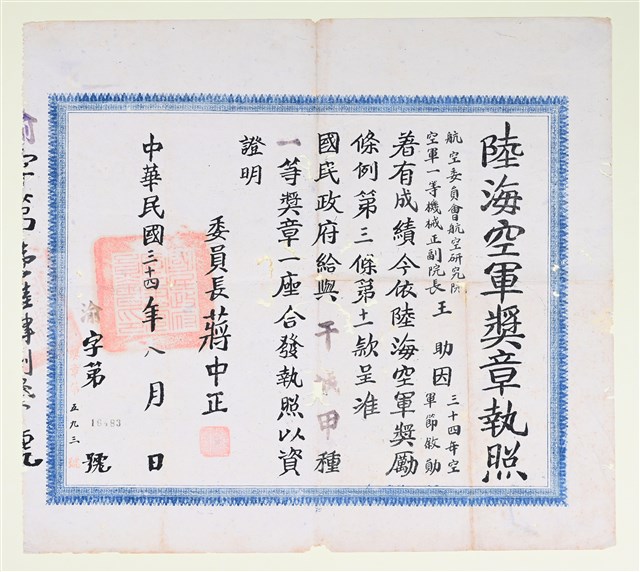 陸海空軍獎章執照
航空委員會航空研究所
空軍一等機械正副院長王助因三十四年空
軍節敘勛
著有成績今依陸海空軍獎勵
條例第三條第十一款呈准
國民政府給與干城甲種
一等獎章一座合發執照以資
證明
委員長蔣中正
中華民國三十四年八月 日
渝字第16483號
五九三
字第